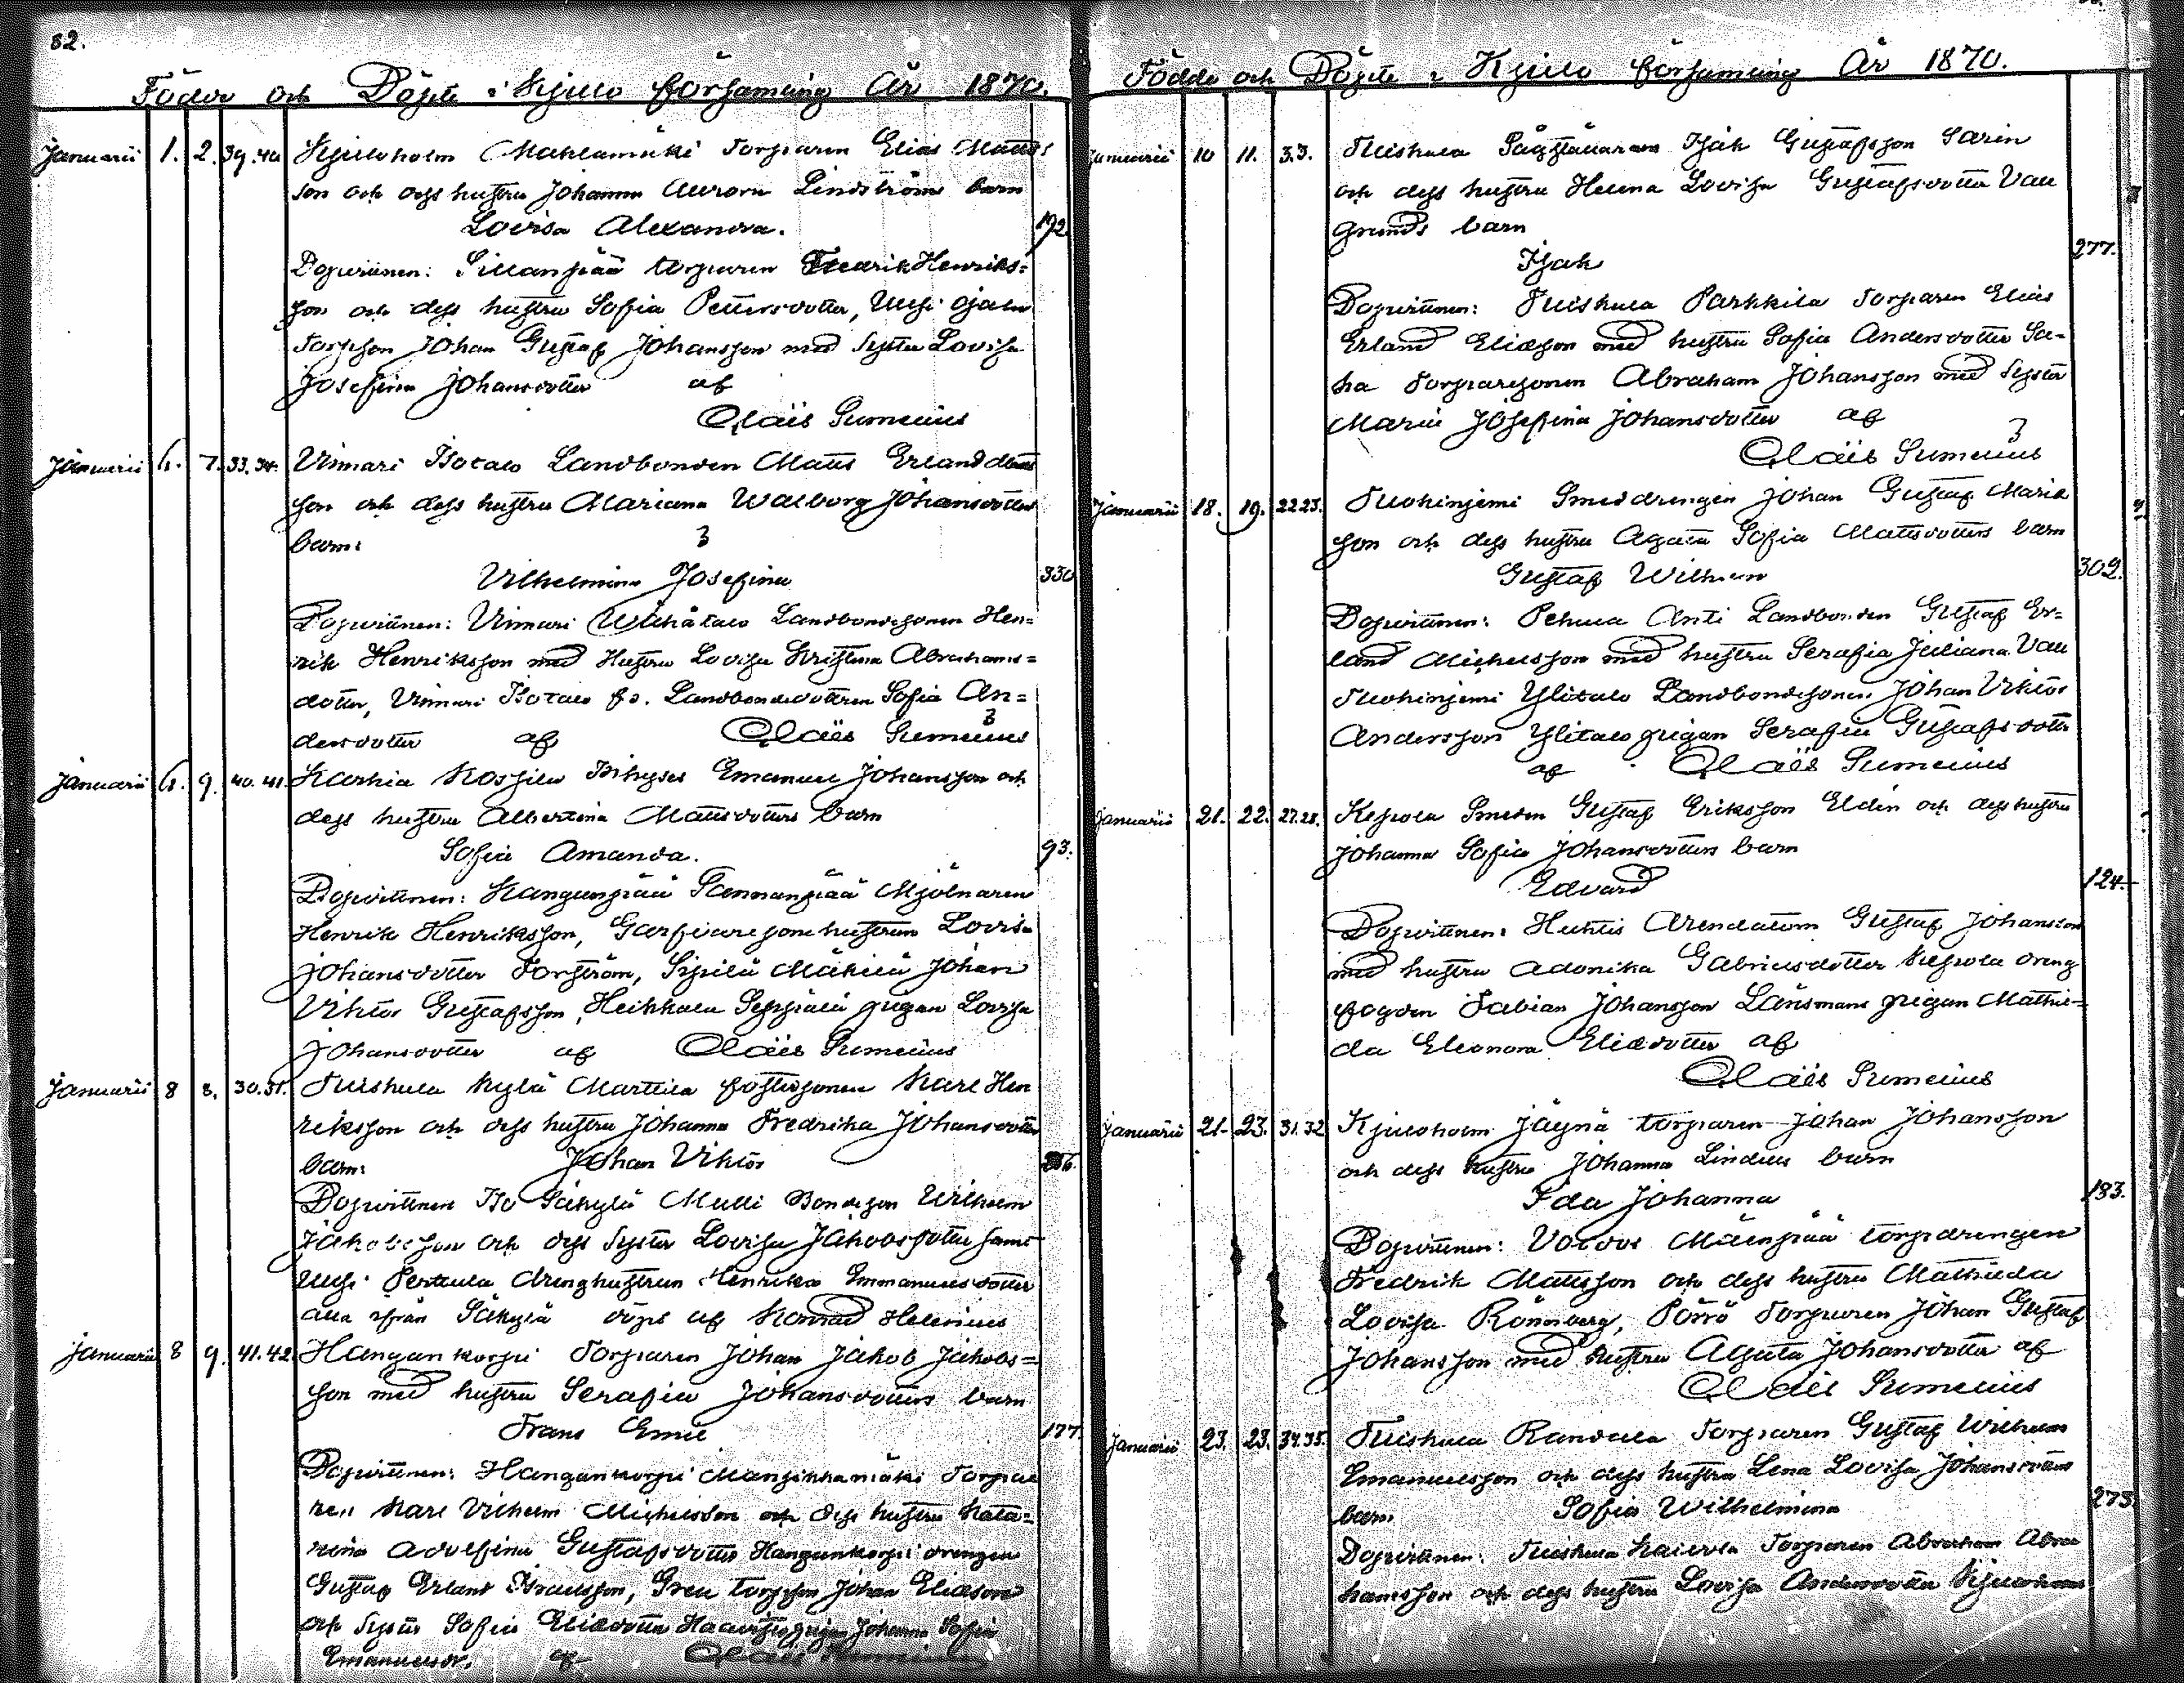 82.
Födde och Döpte i Kjulo församling År 1870.
Januarii 1. 2. 39.40 Kjuloholm Torparen Elias Matts
son och dess hustru Johanna Aurora Lindströms barn
Lovisa Alexandra.
192
Dopvittnen: Sillanpää torparen Fredrik Henriks=
son och dess hustru Sofia Pettersdotter, Uusi ojala
Torpson Johan Gustaf Johansson med syster Lovisa
Josefina Johansdotter af
Claës Sumelius
Januarii 6. 7. 33.34. Vinnari Isotalo Landbonden Matts Erland
son och dess hustru Mariana Walborg Johansdotters
barn:
Vilhelmina Josefina
330
Dopvittnen: Vinnari Landbondesonen Hen=
rik Henriksson med Hustru Lovisa Kristina Abrahams=
dotter, Vinnari Isotalo fd. Landbondedottren Sofia An=
dersdotter af Claës Sumelius
Januarii 6. 9. 40.41. Karhia Inhyses Emanuel Johansson och
dess hustru Albertina Mattsdotters barn
Sofia Amanda.
93.
Dopvittnen: Kangunpää Mjölnaren
Henrik Henriksson, hustrun Lovisa
Johansdotter Forström, Sipilä Mäkilä Johan
Viktor Gustafsson, Heikkala Seppälä pigan Lovisa
Johansdotter af Claës Sumelius
Januarii 8 8. 30.31. Tuiskula Kylä Marttila fostersonen Karl Hen
riksson och dess hustru Johanna Fredrika Johansdotters
barn: Johan Viktor
Dopvittnen Iso Säkylä Mulli Bondeson Wilhelm
Jakobsson och dess syster Lovisa Jakobsdotter samt
Uusi Pertula drenghustrun Henrika Emmanuelsdotter
alla ifrån Säkylä döpt af Konrad Helenius
Januarii 8 9. 41.42 Hangankorpi Torparen Johan Jakob Jakobs=
son med hustru Serafia Johansdotters barn
Frans Emil
177.
Dopvittnen: Hangankorpi Mansikkamäki Torpa
ren Karl Vilhelm Michelsson och dess hustru Kata=
rina Adolfina Gustafsdotter Hangankorpi drengen
Gustaf Erland Israelsson, torpson Johan Eliasson
och syster Sofia Eliedotter pigan Johanna Sofia
Emanuelsdr. af Claës Sumelius
Födde och Döpte i Kjulo församling År 1870.
Januarii 10 11. 33. Tuiskula Isak Gustafsson Sarin
och dess hustru Helena Lovisa Gustafsdotter Val
grunds barn
Isak
277.
Dopvittnen: Tuiskula Parkkila Torparen Elias
Erland Eliasson med hustru Sofia Andersdotter Sa-
ha Torparesonen Abraham Johansson med syster
Maria Josefina Johansdotter af
Claës Sumelius
Januarii 18. 19. 22 23. Tuohiniemi Smeddrengen Johan Gustaf
son och dess hustru Agata Sofia Mattsdotters barn
Gustaf Wilhelm
302.
Dopvittnen: Pehula Anti Landbonden Gustaf Er=
land Michelsson med hustru Serafia Juliana Vall
Tuohiniemi Ylitalo Landbondesonen Johan Viktor
Andersson Ylitalo pigan Serafia Gustafsdotter
af Claës Sumelius
Januarii 21. 22. 27.28. Kepola Smeden Gustaf Eriksson Eldin och dess hustru
Johanna Sofia Johansdotters barn
Edvard
124
Dopvittnen: Huhtis Arendatorn Gustaf Johansson
med hustru Adonika Gabrielsdotter Kepola dreng
fogden Fabian Johansson Länsmans pigan Mathil=
da Eleonora Eliedotter af
Claës Sumelius
Januarii 21. 23. 31.32 Kjuloholm Jäynä torparen Johan Johansson
och dess hustru Johanna Lindells barn
Ida Johanna
183.
Dopvittnen: Mäenpää torpdrengen
Fredrik Mattsson och dess hustru Mathilda
Lovisa Rönnberg, Pörrö Torparen Johan Gustaf
Johansson med hustru Agata Johansdotter af
Claës Sumelius
Januarii 23. 23. 34.35. Tuiskula Randala Torparen Gustaf Wilhelm
Emanuelsson och dess hustru Lena Lovisa Johansdotters
barn Sofia Wilhelmina
273
Dopvittnen: Tuiskula Torparen Abraham Abra
hamsson och dess hustru Lovisa Andersdotter Kjuloholm